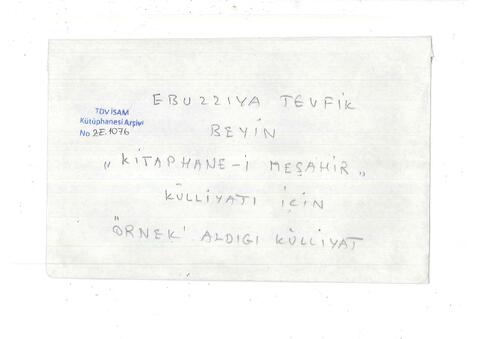 EBUZZIYA TEVFİK
TDV İSAM
Kütüphanesi Arşivi
No 2E.1076
BEYİN
„KİTAPHANE-İ MEŞAHİR„
KÜLLİYATI İÇİN
"ÖRNEK' ALDIGI KÜLLİYAT